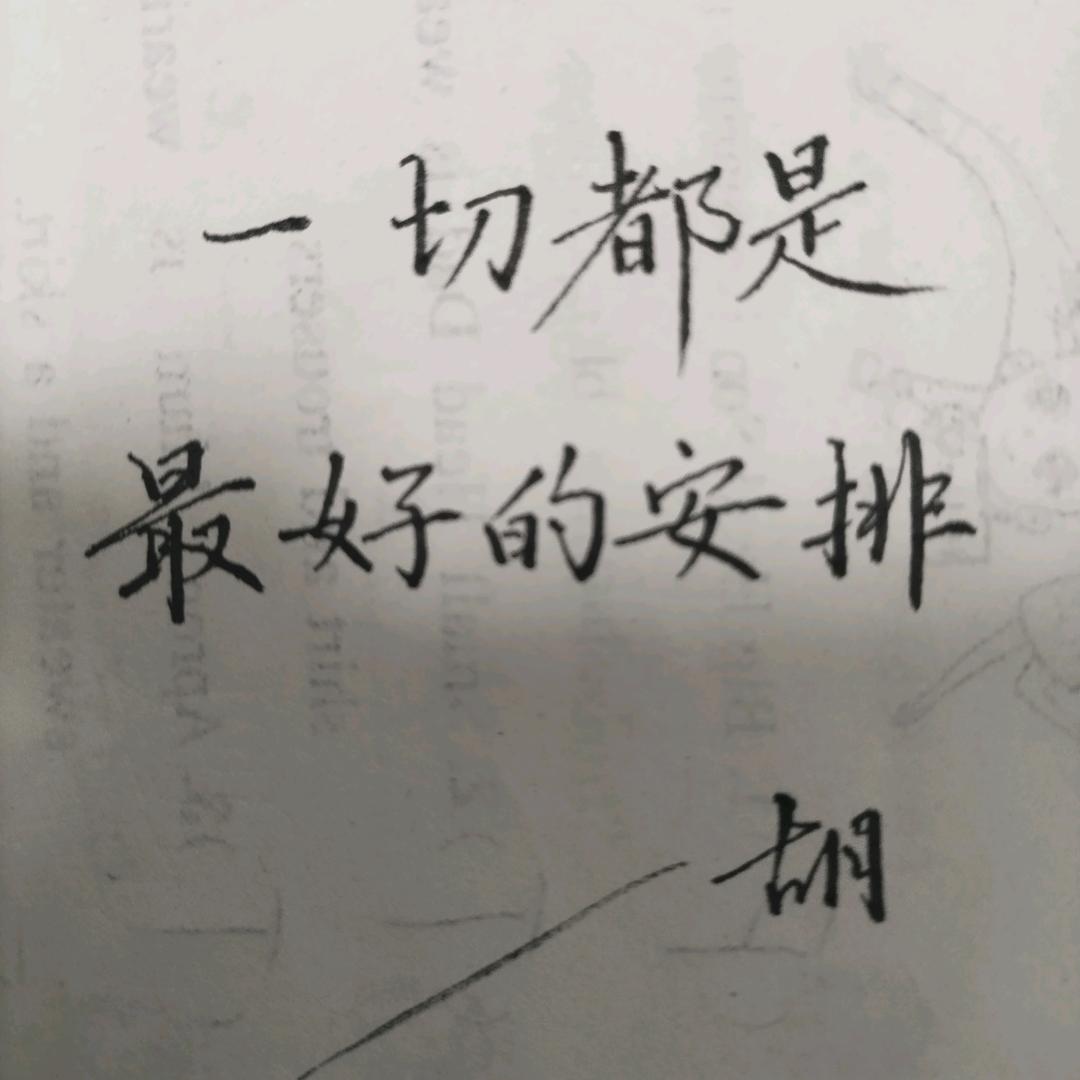 一切都是
最好的安排
——胡